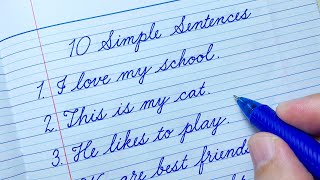 10 Simple Sentences
1. I love my school.
2. This is my cat
3. He likes to play.
are best friends